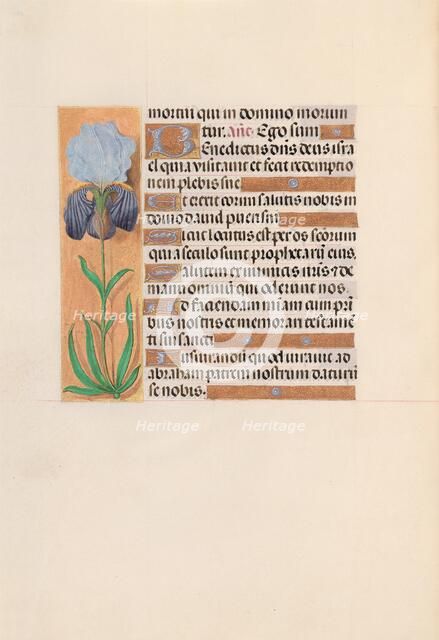 mortui qui in domino moriun
tur. Añt. Ego sum
Benedictus dñs deus isra
el qui a visitavit et fecit redemptio
nem plebis sue
Et erexit cornu salutis nobis in
domo david pueri sui
Sicut locutus est per os sctorum
qui a seculo sunt prophetarũ eius.
Salutem ex inimicis nrĩs ⁊ de
manu omniũ qui oderunt nos.
Ad faciendam miam cum pr̃i
bus nostris et memorari test ameͥ
ti sui sancti
Iusiurandũ quod iuravit ad
abraham patrem nostrum daturũ
se nobis.
Heritage
Heritage
Heritage
Heritage
Heritage
Heritage